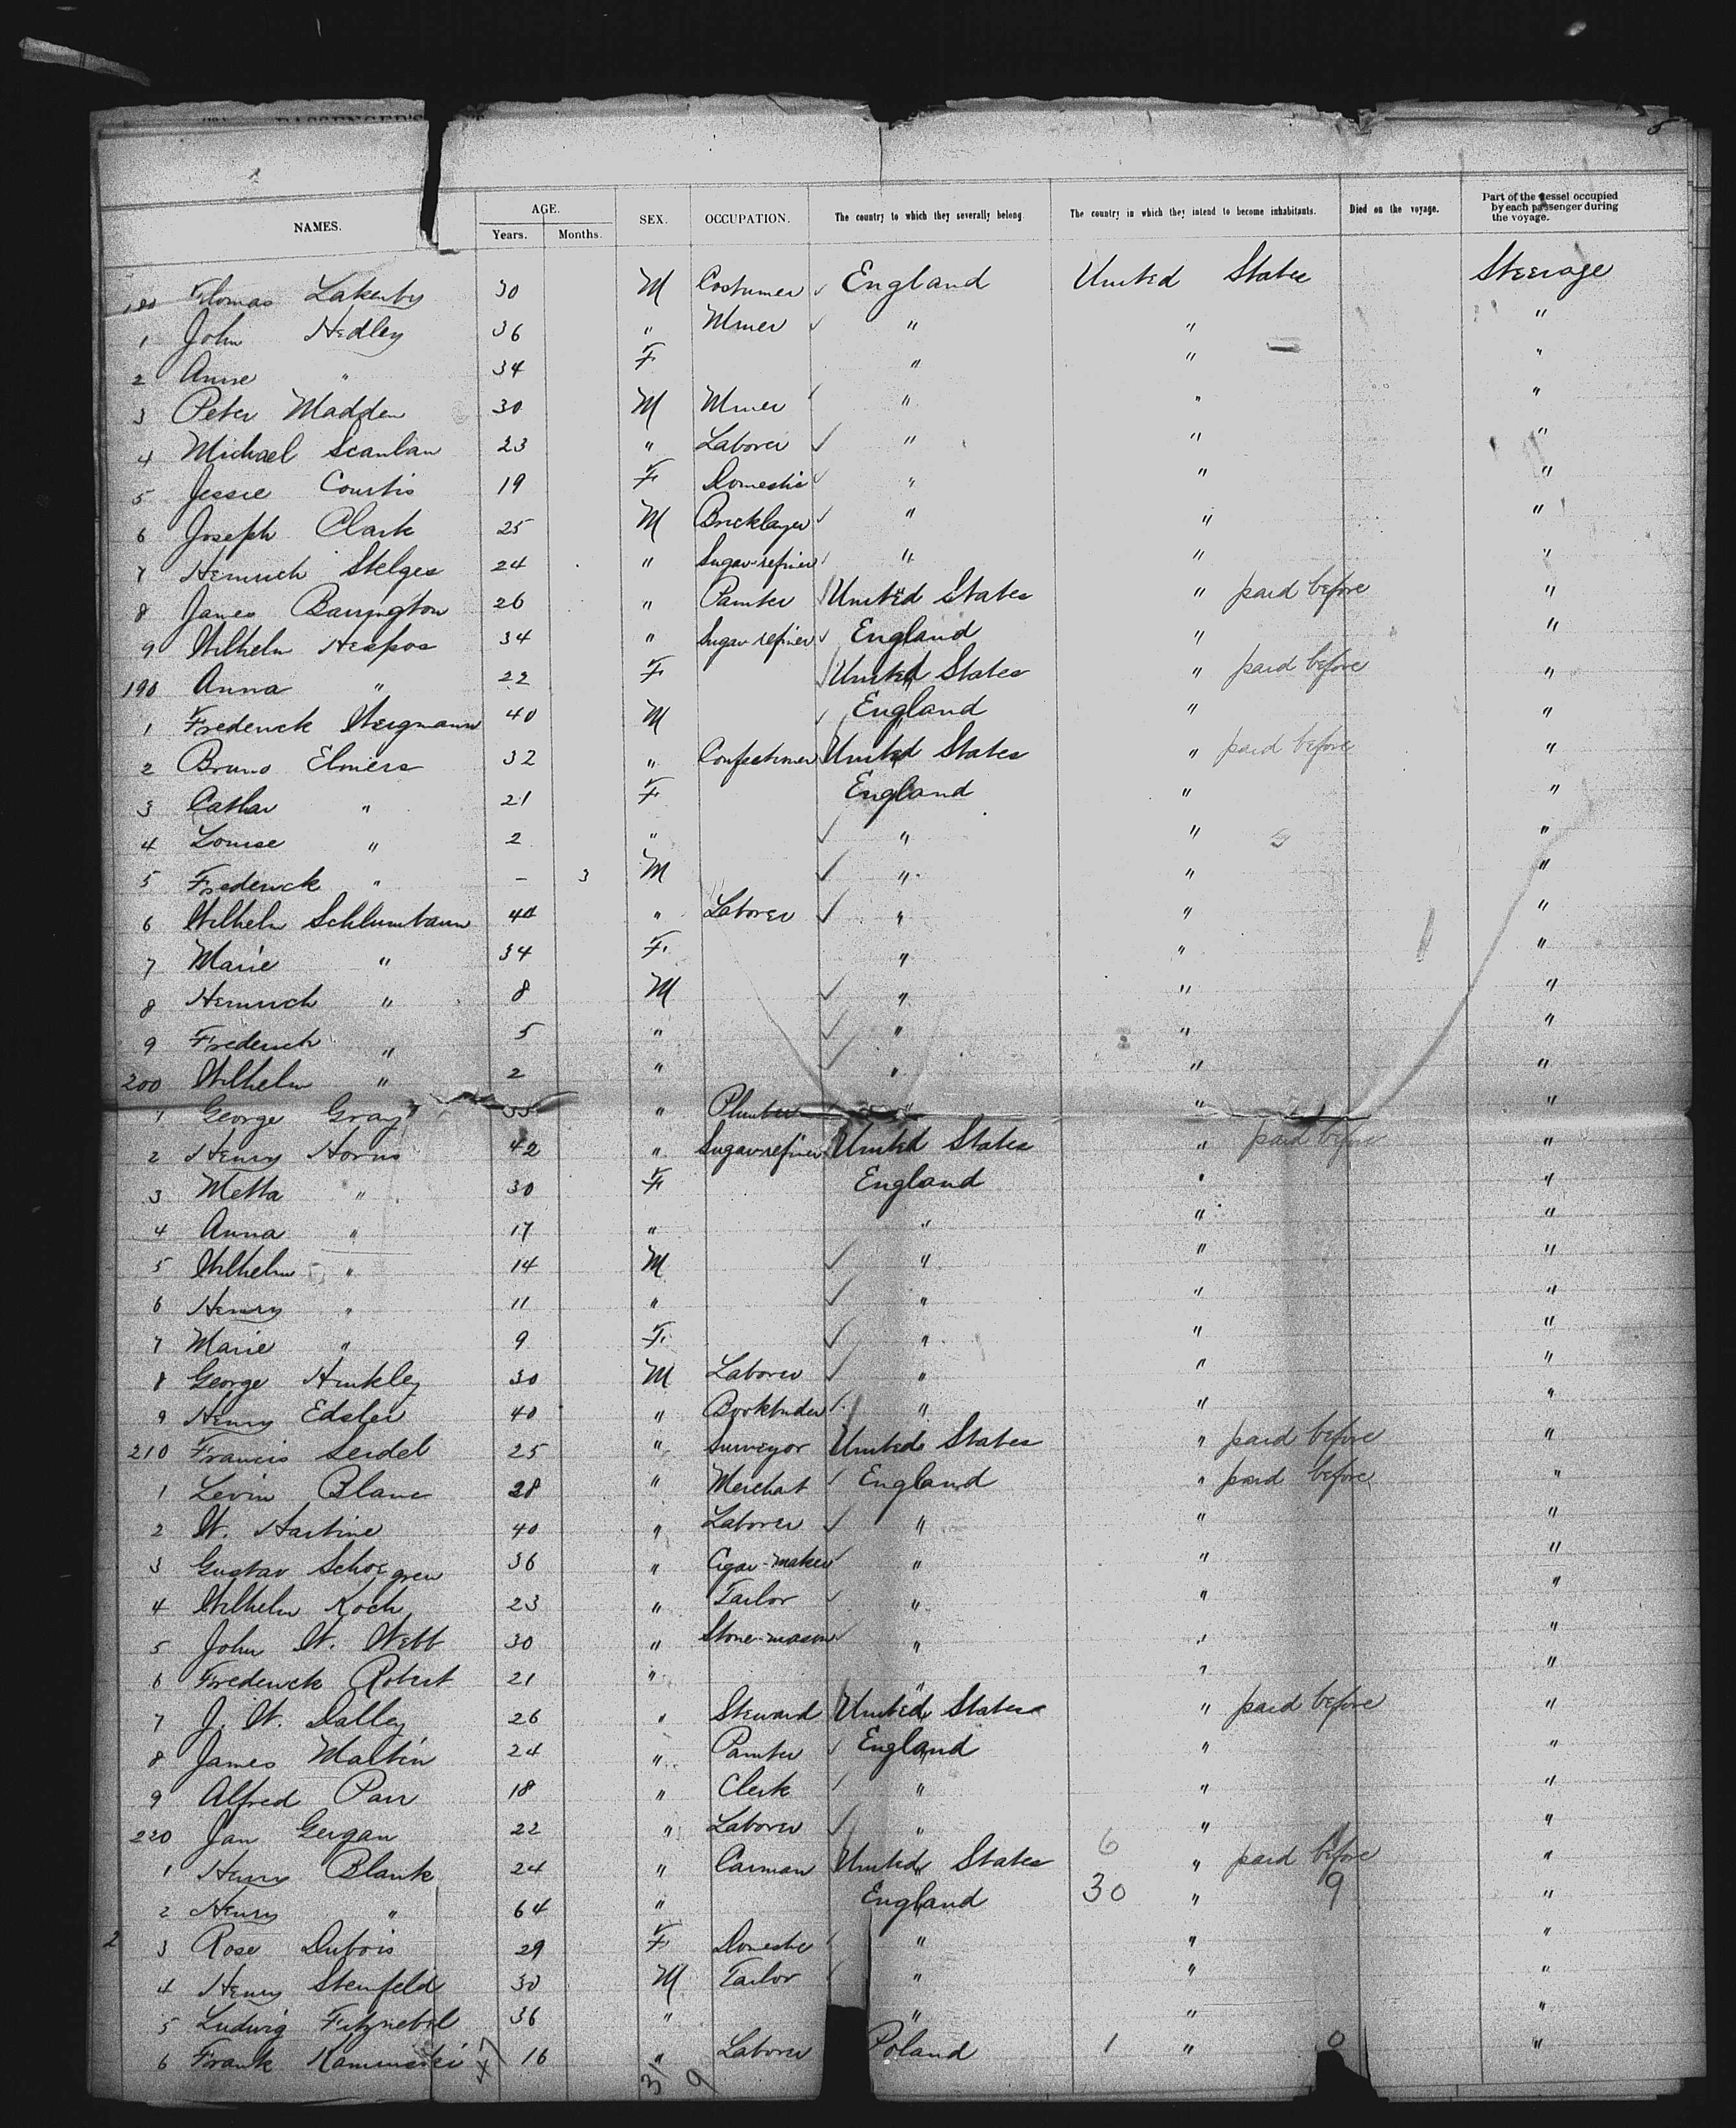 PASSENGER'S
5
NAMES. AGE. Years. Months. SEX. OCCUPATION. The country to which they severally belong. The country in which they intend to become inhabitants. Died on the voyage. Part of the vessel occupied by each passenger during the voyage.
180 Thomas Lakenby 30 M Costumer ✓ England United States Steerage
1 John Hedley 36 " Miner ✓ " " "
2 Annie " 34 F " " "
3 Peter Madden 30 M Miner " " "
4 Michael Scanlan 23 " Laborer ✓ " " "
5 Jessie Courtis 19 F Domestic ✓ " " "
6 Joseph Clark 25 M Bricklayer ✓ " " "
7 Heinrich Stelges 24 " Sugar-refiner " " "
8 James Barrington 26 " Painter United States " paid before "
9 Wilhelm Hespos 34 " Sugar refiner ✓ England " "
190 Anna " 22 F United States " paid before "
1 Frederick Wergmann 40 M ✓ England " "
2 Bruno Elmers 32 " Confectioner United States " paid before "
3 Cathar " 21 F England " "
4 Louise " 2 " ✓ " " "
5 Frederick " – 3 M ✓ " " "
6 Wilhelm Schlumbaum 40 " Laborer ✓ " " "
7 Marie " 34 F. " " "
8 Heinrich " 8 M ✓ " " "
9 Frederich " 5 " ✓ " " "
200 Wilhelm " 2 " ✓ " " "
1 George Gray 35 " Plumber " " "
2 Henry Horns 42 " Sugar-refiner United States " paid before "
3 Metta " 30 F England " "
4 Anna " 17 " " " "
5 Wilhelm " 14 M ✓ " " "
6 Henry " 11 " ✓ " " "
7 Marie " 9 F. ✓ " " "
8 George Hinkley 30 M Laborer ✓ " " "
9 Henry Edsler 40 " Bookbinder ✓ " " "
210 Francis Seidel 25 " Surveyor United States " paid before "
1 Levin Blanc 28 " Merchat ✓ England " paid before "
2 W. Hartine 40 " Laborer ✓ " " "
3 Gustav Schoegren 36 " Cigar-maker ✓ " " "
4 Wilhelm Koch 23 " Tailor ✓ " " "
5 John W. Webb 30 " Stone-mason ✓ " " "
6 Frederick Robert 21 " " " "
7 J. W. Dalley 26 " Steward United States " paid before "
8 James Martin 24 " Painter ✓ England " "
9 Alfred Parr 18 " Clerk ✓ " " "
220 Jan Gergan 22 " Laborer ✓ " " "
1 Henry Blank 24 " Carman United States 6 " paid before "
2 Henry " 64 " England 30 " 9 "
2 3 Rose Dubois 29 F Domestic " " "
4 Henry Stenfeld 30 M Tailor " " "
5 Ludwig 36 " " " "
6 Frank Kaminski 16 " Laborer Poland 1 " 0 "
31 9